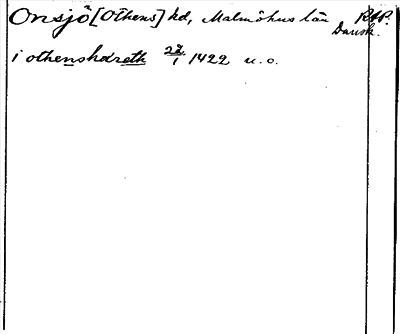 Onsjö [Othens] hd, Malmöhus län RAP.
Dansk.
i othenshdreth 22/1 1422 u. o.